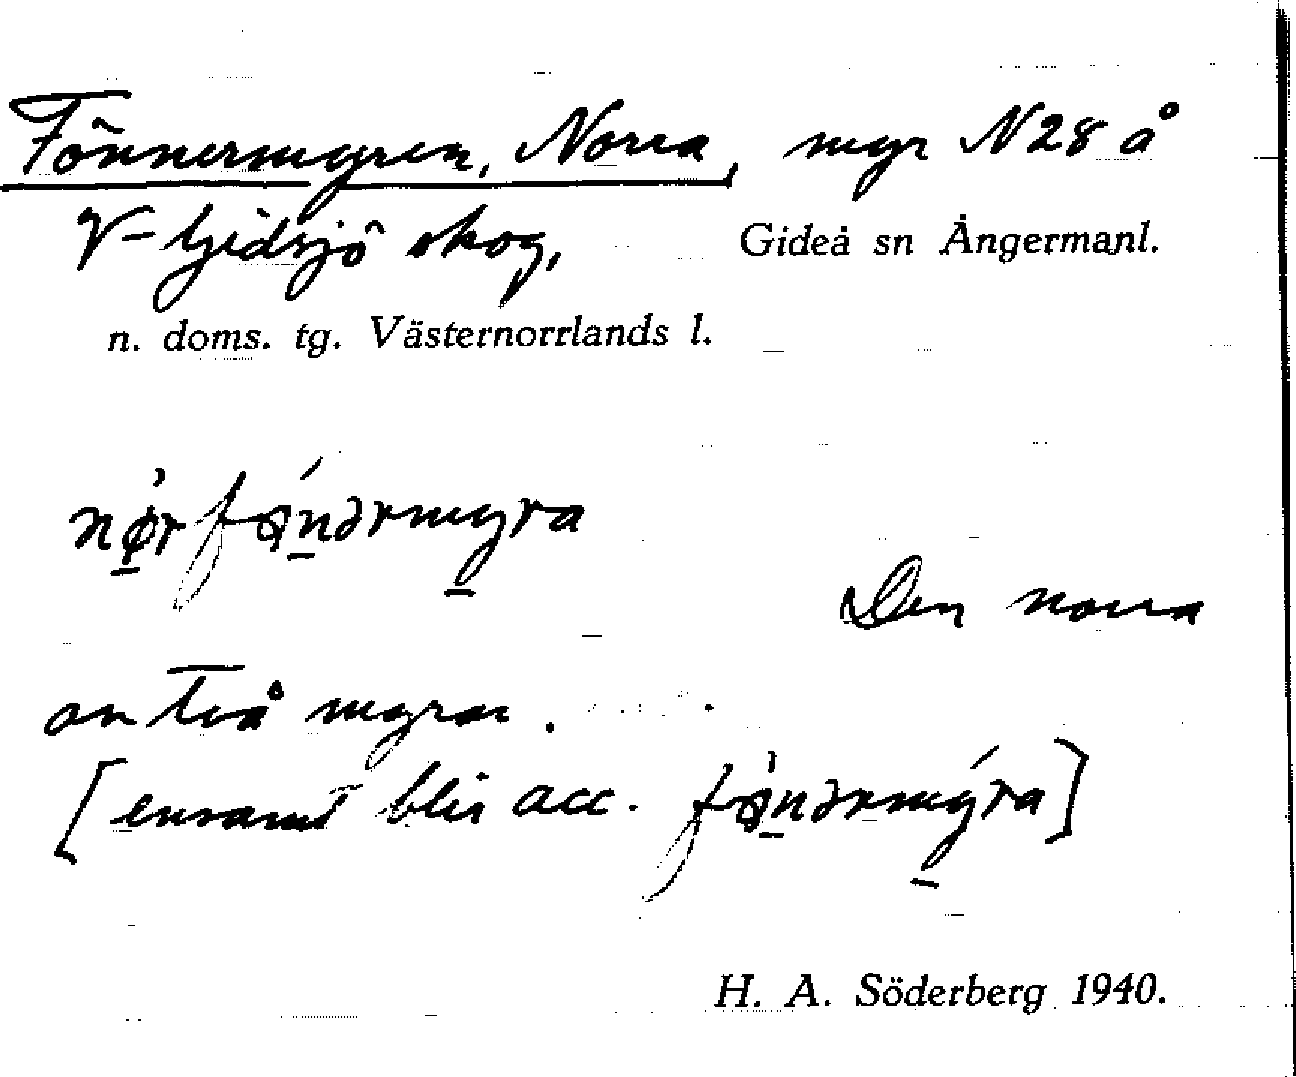 Fönnermyren, Norra, myr N 28 å
V-Gidsjö skog, Gideå sn Ångermanl.
n. doms. tg. Västernorrlands l.
nørfønərmyra
Den norra
av två myrar.
[ensamt blir acc. fønərmyra]
H. A. Söderberg 1940.